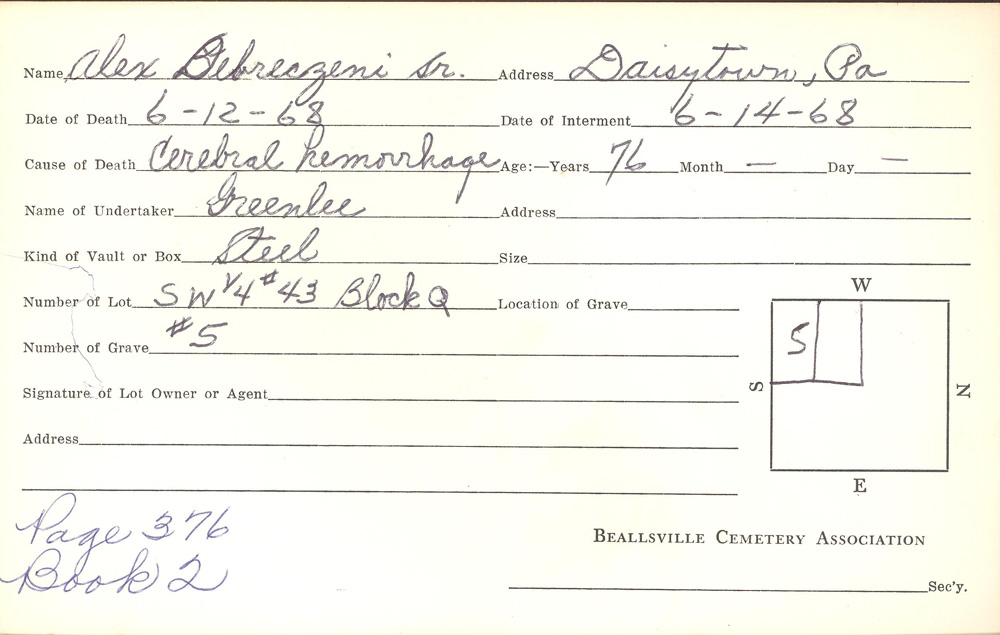 Name Alex Debreczeni Sr. Address Daisytown, Pa
Date of Death 6-12-68 Date of Interment 6-14-68
Cause of Death Cerebral hemorrhage Age:—Years 76 Month — Day —
Name of Undertaker Greenlee Address
Kind of Vault or Box Steel Size
Number of Lot SW 1/4 #43 Block Q Location of Grave
Number of Grave #5
Signature of Lot Owner or Agent
Address
W
5
S
N
E
Page 376
Book 2
BEALLSVILLE CEMETERY ASSOCIATION
Sec'y.